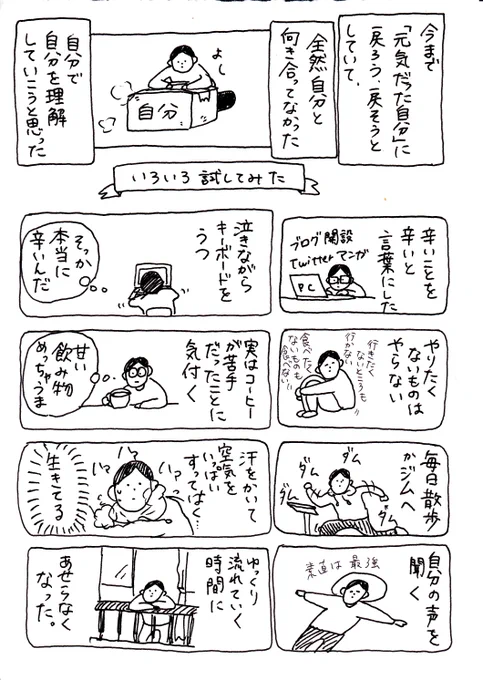 今まで
「元気だった自分」に
戻ろう、戻そうと
していて、
全然自分と
向き合ってなかった
よし
自分
自分で
自分を理解
していこうと思った
いろいろ試してみた
辛いことを
辛いと
言葉にした
ブログ開設
twitterマンガ
PC
泣きながら
キーボードを
うつ
そっか
本当に
辛いんだ
やりたく
ないものは
やらない
行きたく
ないところも
行かない
食べたく
ないものも
食べない!!
実はコーヒー
が苦手
だったことに
気付く
甘い
飲み物
めっちゃうま
毎日散歩
かジムへ
ダム
ダム
ダム
ダム
汗をかいて
空気を
いっぱい
すってはく…
ハァ
ハァ
ハァ
生きてる
自分の声を
聞く
素直は最強
ゆっくり
流れていく
時間に
あせらなく
なった。